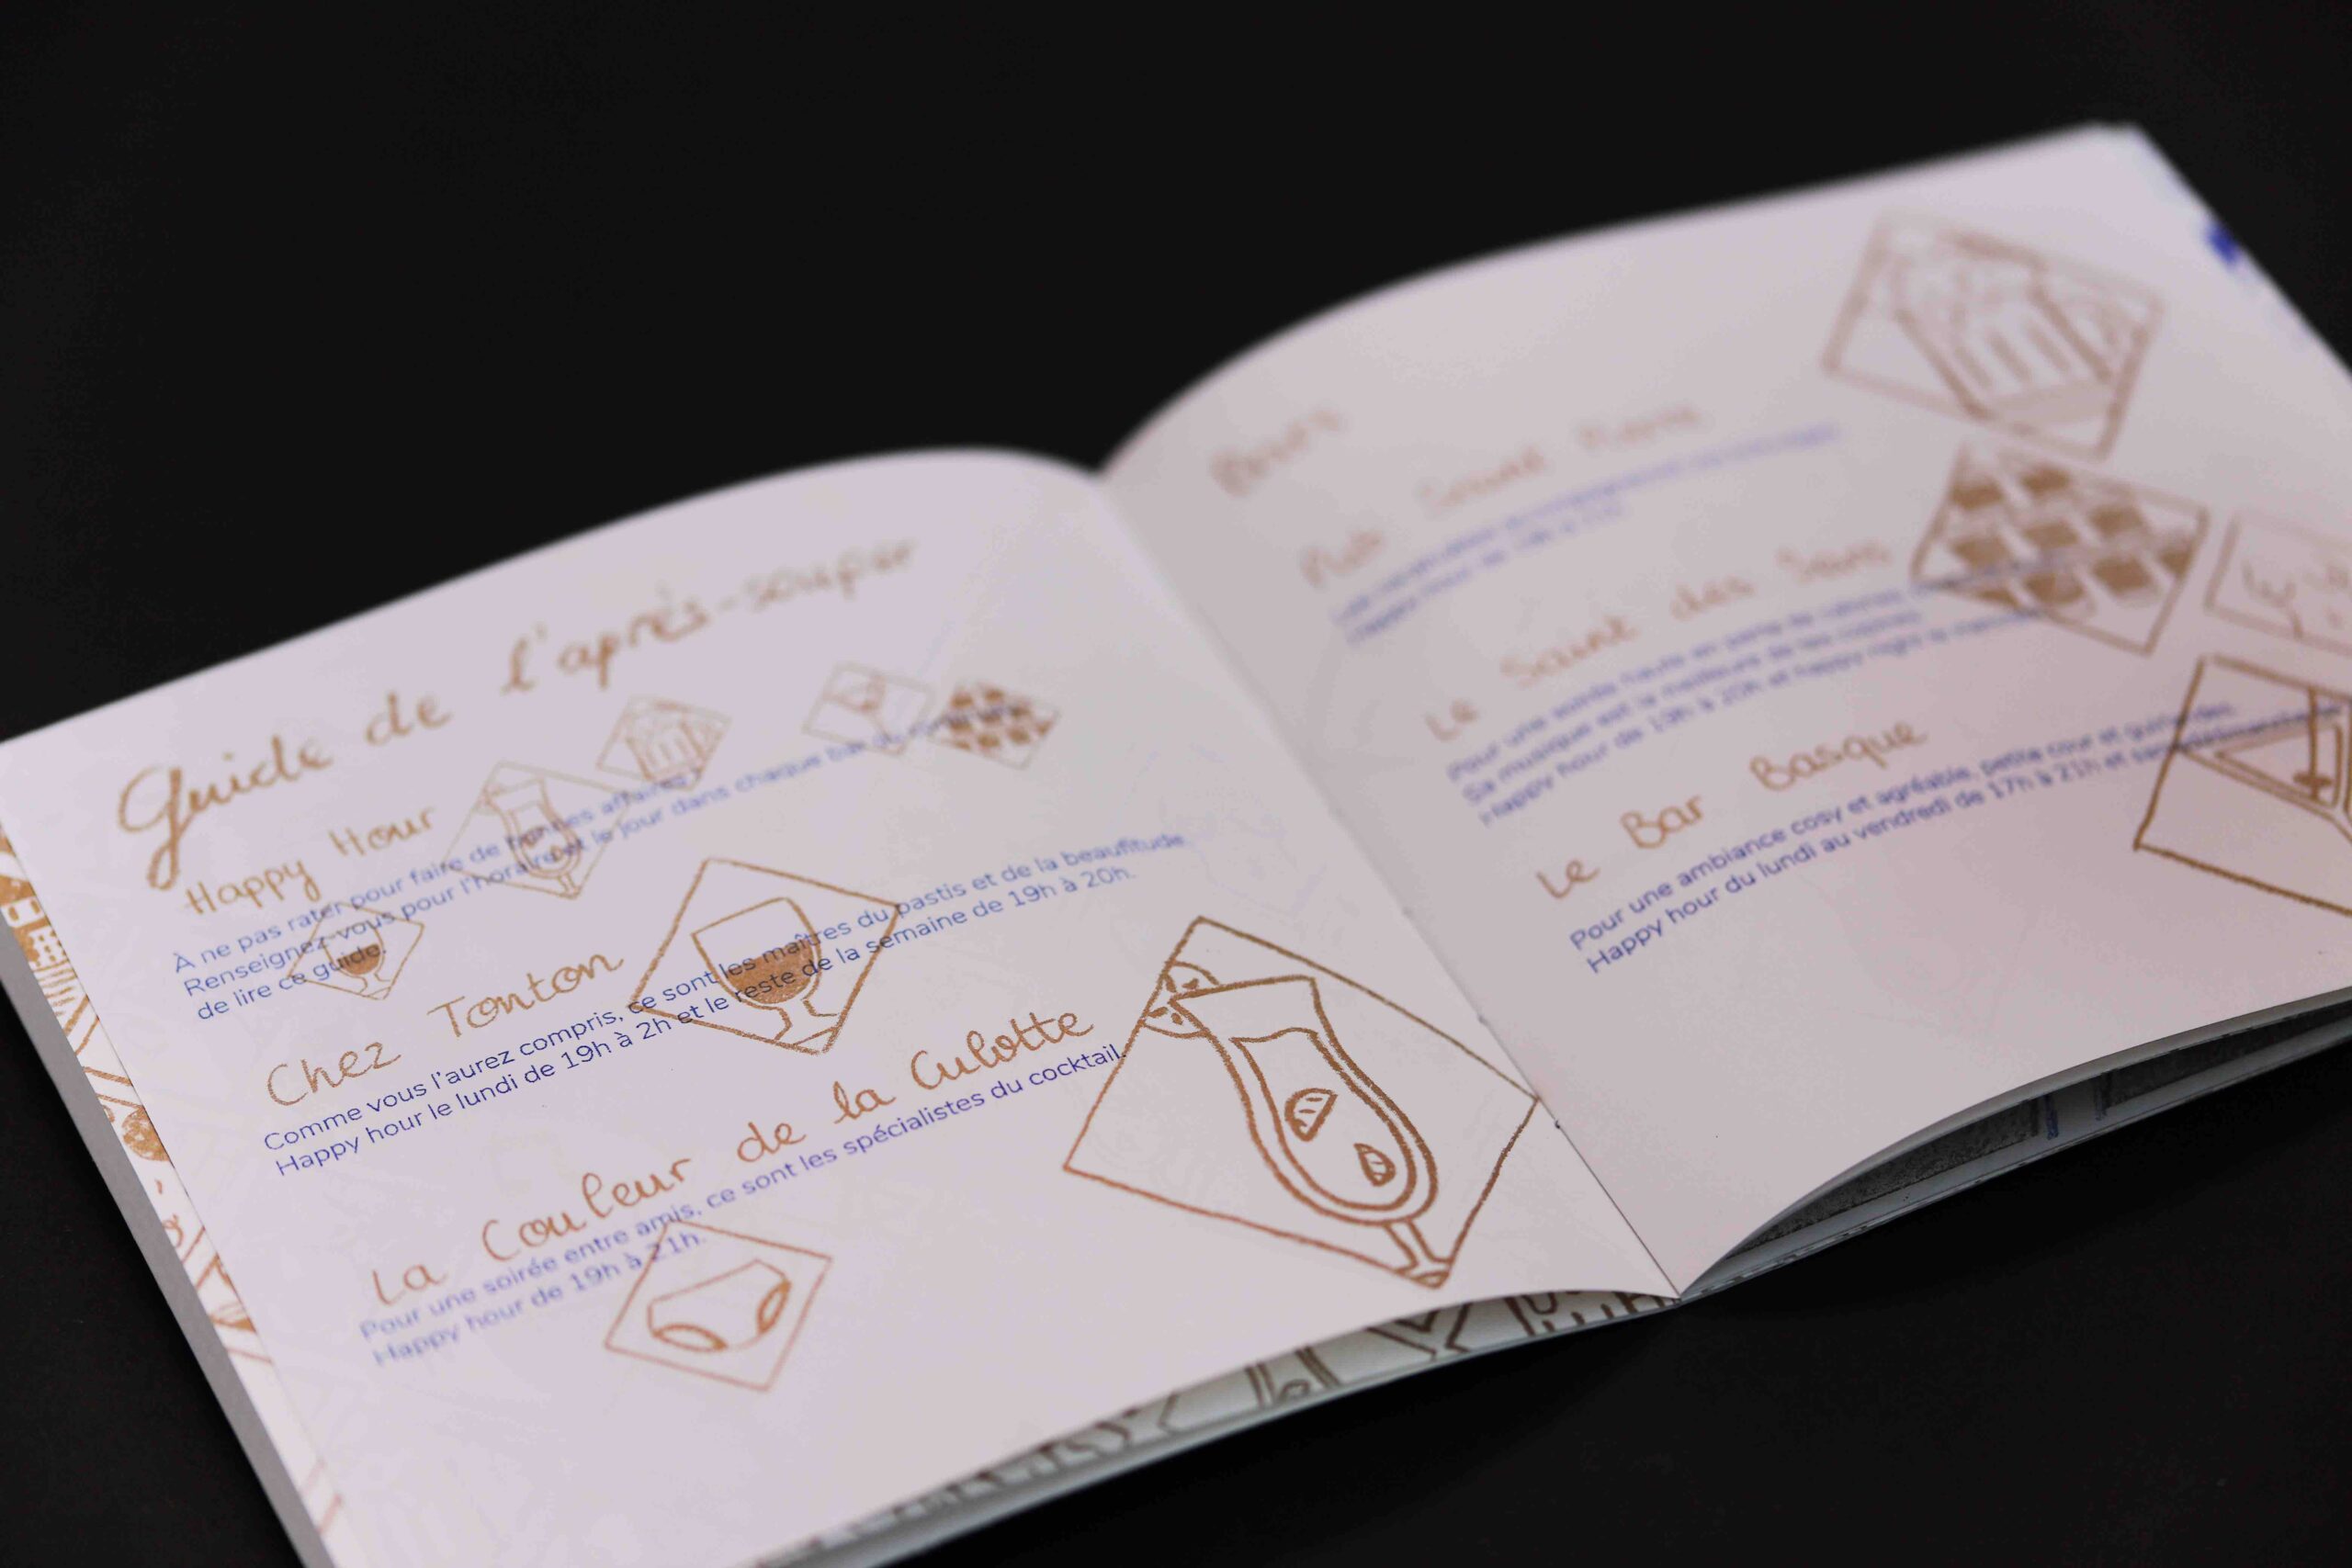 Guide de l'après-souper
Happy Hour
À ne pas rater pour faire de bonnes affaires !
Renseignez-vous pour l'horaire et le jour dans chaque bar
de lire ce guide.
Chez Tonton
Comme vous l'aurez compris, ce sont les maîtres du pastis et de la beaufitude.
Happy hour le lundi de 19h à 2h et le reste de la semaine de 19h à 20h.
La Couleur de la Culotte
Pour une soirée entre amis, ce sont les spécialistes du cocktail.
Happy hour de 19h à 21h.
Bars
Pub Saint Pierre
Happy hour de
Le Saint des Seins
Pour une soirée haute en perte de calories
Sa musique est la meilleure de
Happy hour de 19h à 20h et happy night le
Le Bar Basque
Pour une ambiance cosy et agréable, petite cour et guirlandes.
Happy hour du lundi au vendredi de 17h à 21h et